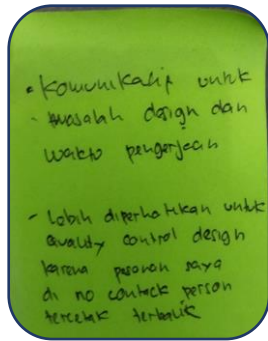 • Komunikatif untuk
- masalah design dan
waktu pengerjaan
- Lebih diperhatikan untuk
Quality control design
karena pesanan saya
di no contack person
tercetak terbalik